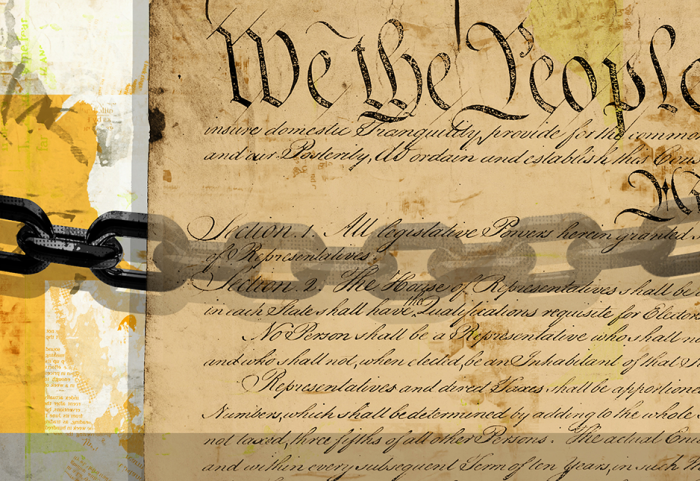 We the People
insure domestic Tranquility, provide for the common
and our Posterity, do ordain and establish this
Section. 1. All legislative Powers herein granted
of Representatives.
Section. 2. The House of Representatives shall be
in each State shall have the Qualifications requisite for Electors
No Person shall be a Representative who shall not
and who shall not, when elected, be an Inhabitant of that
Representatives and direct Taxes shall be apportioned
Numbers, which shall be determined by adding to the whole
not taxed, three fifths of all other Persons. The actual
and within every subsequent Term of ten Years, in such